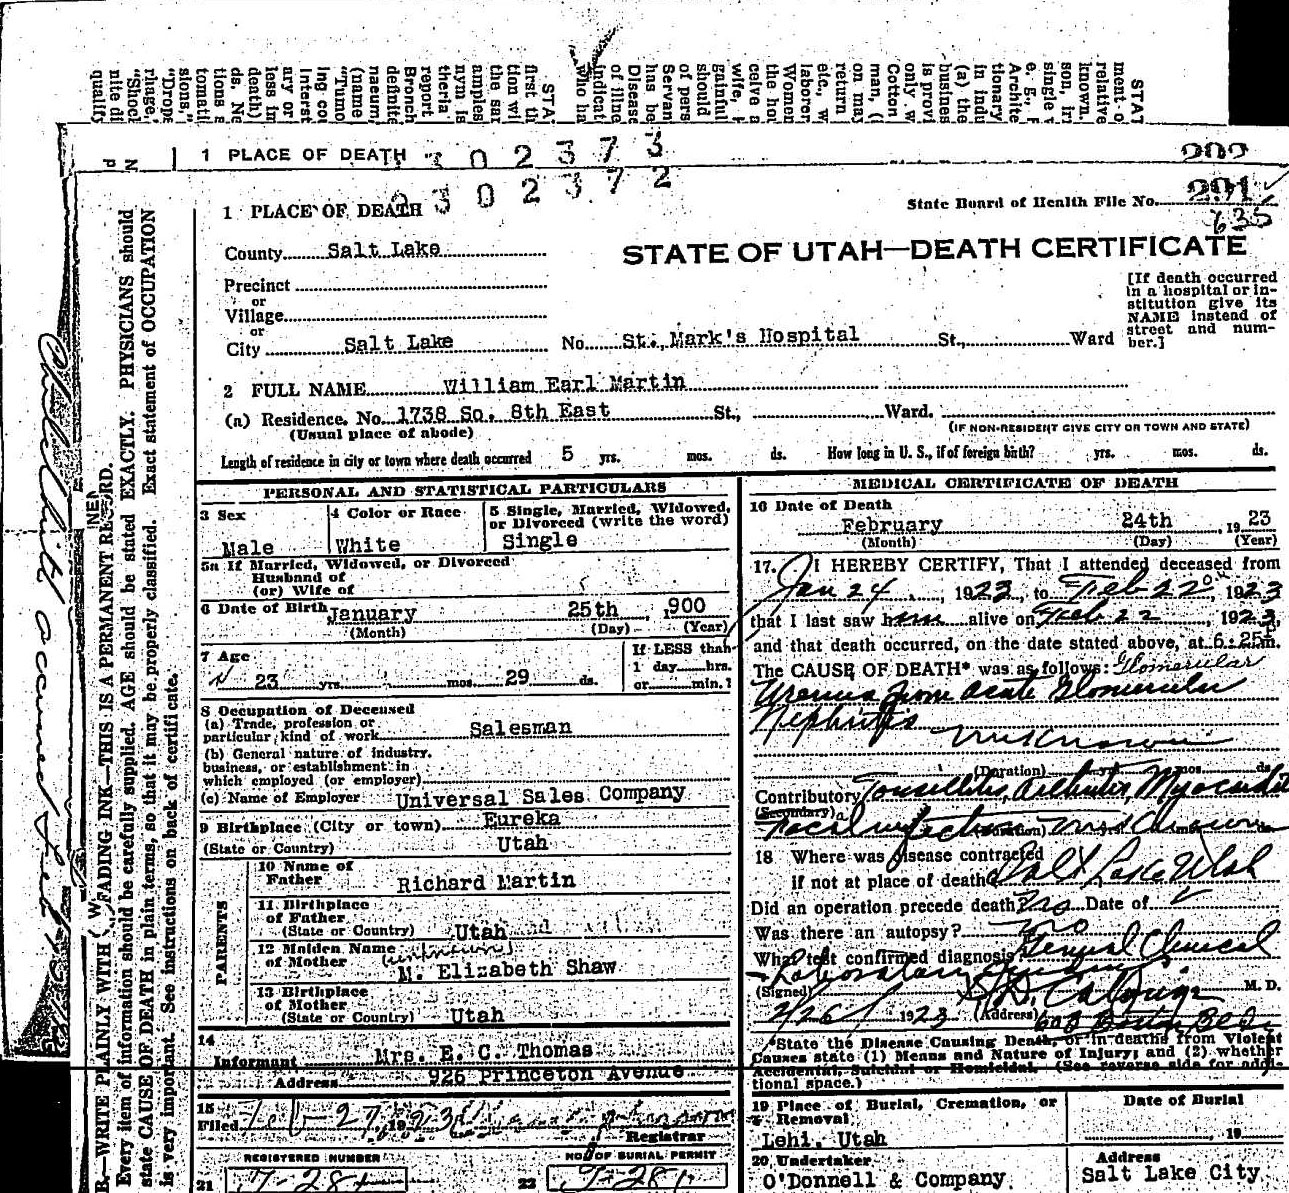 STA
ment o
relative
known.
son, ir
single
e. g.,
Archite
tionary
in indu
(a) the
business
is provi
only w
Cotton
man, (
return
on may
etc., w
laborer
Women
the ho
ceive a
wife,
gainful
should
of pers
Servan
has be
Disease
of illne
indicat
who ha
STA
first th
tion wi
the sar
amples
nym is
theria
report
Bronch
definit
naeum,
(name
"Tumo
ing co
interst
ary or
less im
death)
ds. Ne
tions s
tomati
sions,"
"Drops
rhage,"
"Shock
nite di
qualify
1 PLACE OF DEATH 2302373
202
2302372
1 PLACE OF DEATH
State Board of Health File No. 201
635
STATE OF UTAH—DEATH CERTIFICATE
County Salt Lake
Precinct
or
Village
or
City Salt Lake No. St. Mark's Hospital St., Ward
[If death occurred
in a hospital or in-
stitution give its
NAME instead of
street and num-
ber.]
2 FULL NAME William Earl Martin
(a) Residence. No. 1738 So. 8th East St., Ward.
(Usual place of abode) (IF NON-RESIDENT GIVE CITY OR TOWN AND STATE)
Length of residence in city or town where death occurred 5 yrs. mos. ds. How long in U. S., if of foreign birth? yrs. mos. ds.
PERSONAL AND STATISTICAL PARTICULARS
3 Sex
Male
4 Color or Race
White
5 Single, Married, Widowed,
or Divorced (write the word)
Single
5a If Married, Widowed, or Divorced
Husband of
(or) Wife of
6 Date of Birth January 25th ,900
(Month) (Day) (Year)
7 Age
23 yrs. mos. 29 ds.
If LESS than
1 day hrs.
or min.?
8 Occupation of Deceased
(a) Trade, profession or
particular kind of work Salesman
(b) General nature of industry,
business, or establishment in
which employed (or employer)
(c) Name of Employer Universal Sales Company
9 Birthplace (City or town) Eureka
(State or Country) Utah
PARENTS
10 Name of
Father Richard Martin
11 Birthplace
of Father
(State or Country) Utah
12 Maiden Name
of Mother (unknown)
M. Elizabeth Shaw
13 Birthplace
of Mother
(State or Country) Utah
14
Informant Mrs. E. C. Thomas
Address 926 Princeton Avenue
15
Filed Feb-27, 1923
Registrar
REGISTERED NUMBER NO. OF BURIAL PERMIT
21 7-281 22 7-281
MEDICAL CERTIFICATE OF DEATH
16 Date of Death
February 24th , 1923
(Month) (Day) (Year)
17. I HEREBY CERTIFY, That I attended deceased from
Jan 24, 1923, to Feb 22, 1923
that I last saw him alive on Feb 22, 1923,
and that death occurred, on the date stated above, at 6:25 m.
The CAUSE OF DEATH* was as follows: Glomerular
Uremia from acute Glomerular
Nephritis
unknown
(Duration) yrs. mos. ds.
Contributory Tonsillitis, Arthritis, Myocardit
(Secondary)
Focal infection (Duration) unknown
18 Where was disease contracted
if not at place of death? Salt Lake Utah
Did an operation precede death? no Date of
Was there an autopsy? no
What test confirmed diagnosis? General Clinical
Laboratory
(Signed) M. D.
2/26/ 1923 (Address) 603 Boston Bldg
*State the Disease Causing Death, or in deaths from Violent
Causes state (1) Means and Nature of Injury; and (2) whether
Accidental, Suicidal or Homicidal. (See reverse side for addi-
tional space.)
19 Place of Burial, Cremation, or
Removal
Lehi, Utah
Date of Burial
, 19
20 Undertaker
O'Donnell & Company
Address
Salt Lake City
B.—WRITE PLAINLY WITH UNFADING INK—THIS IS A PERMANENT RECORD.
Every item of information should be carefully supplied. AGE should be stated EXACTLY. PHYSICIANS should
state CAUSE OF DEATH in plain terms, so that it may be properly classified. Exact statement of OCCUPATION
is very important. See instructions on back of certificate.